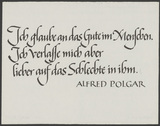 Ich glaube an das Gute im Menschen.
Ich verlasse mich aber
lieber auf das Schlechte in ihm.
ALFRED POLGAR